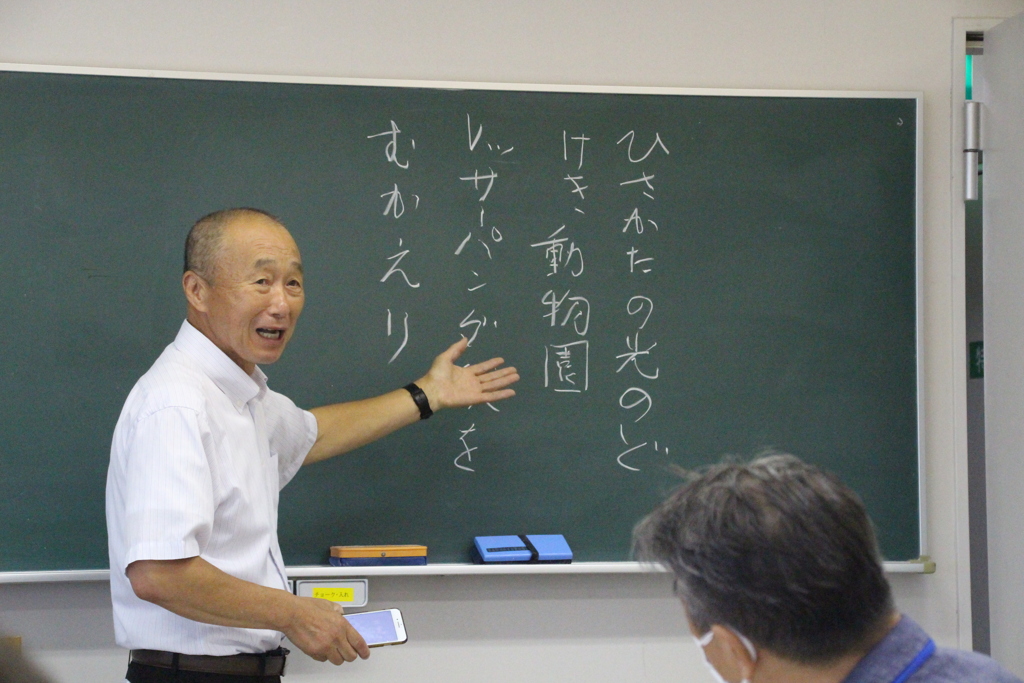 ひさかたの光のど
けき、動物園
レッサーパンダ を
むかえり
チョーク入れ